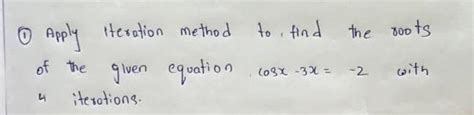 ① Apply iteration method to find the roots
of the given equation cosx -3x = -2 with
4 iterations.